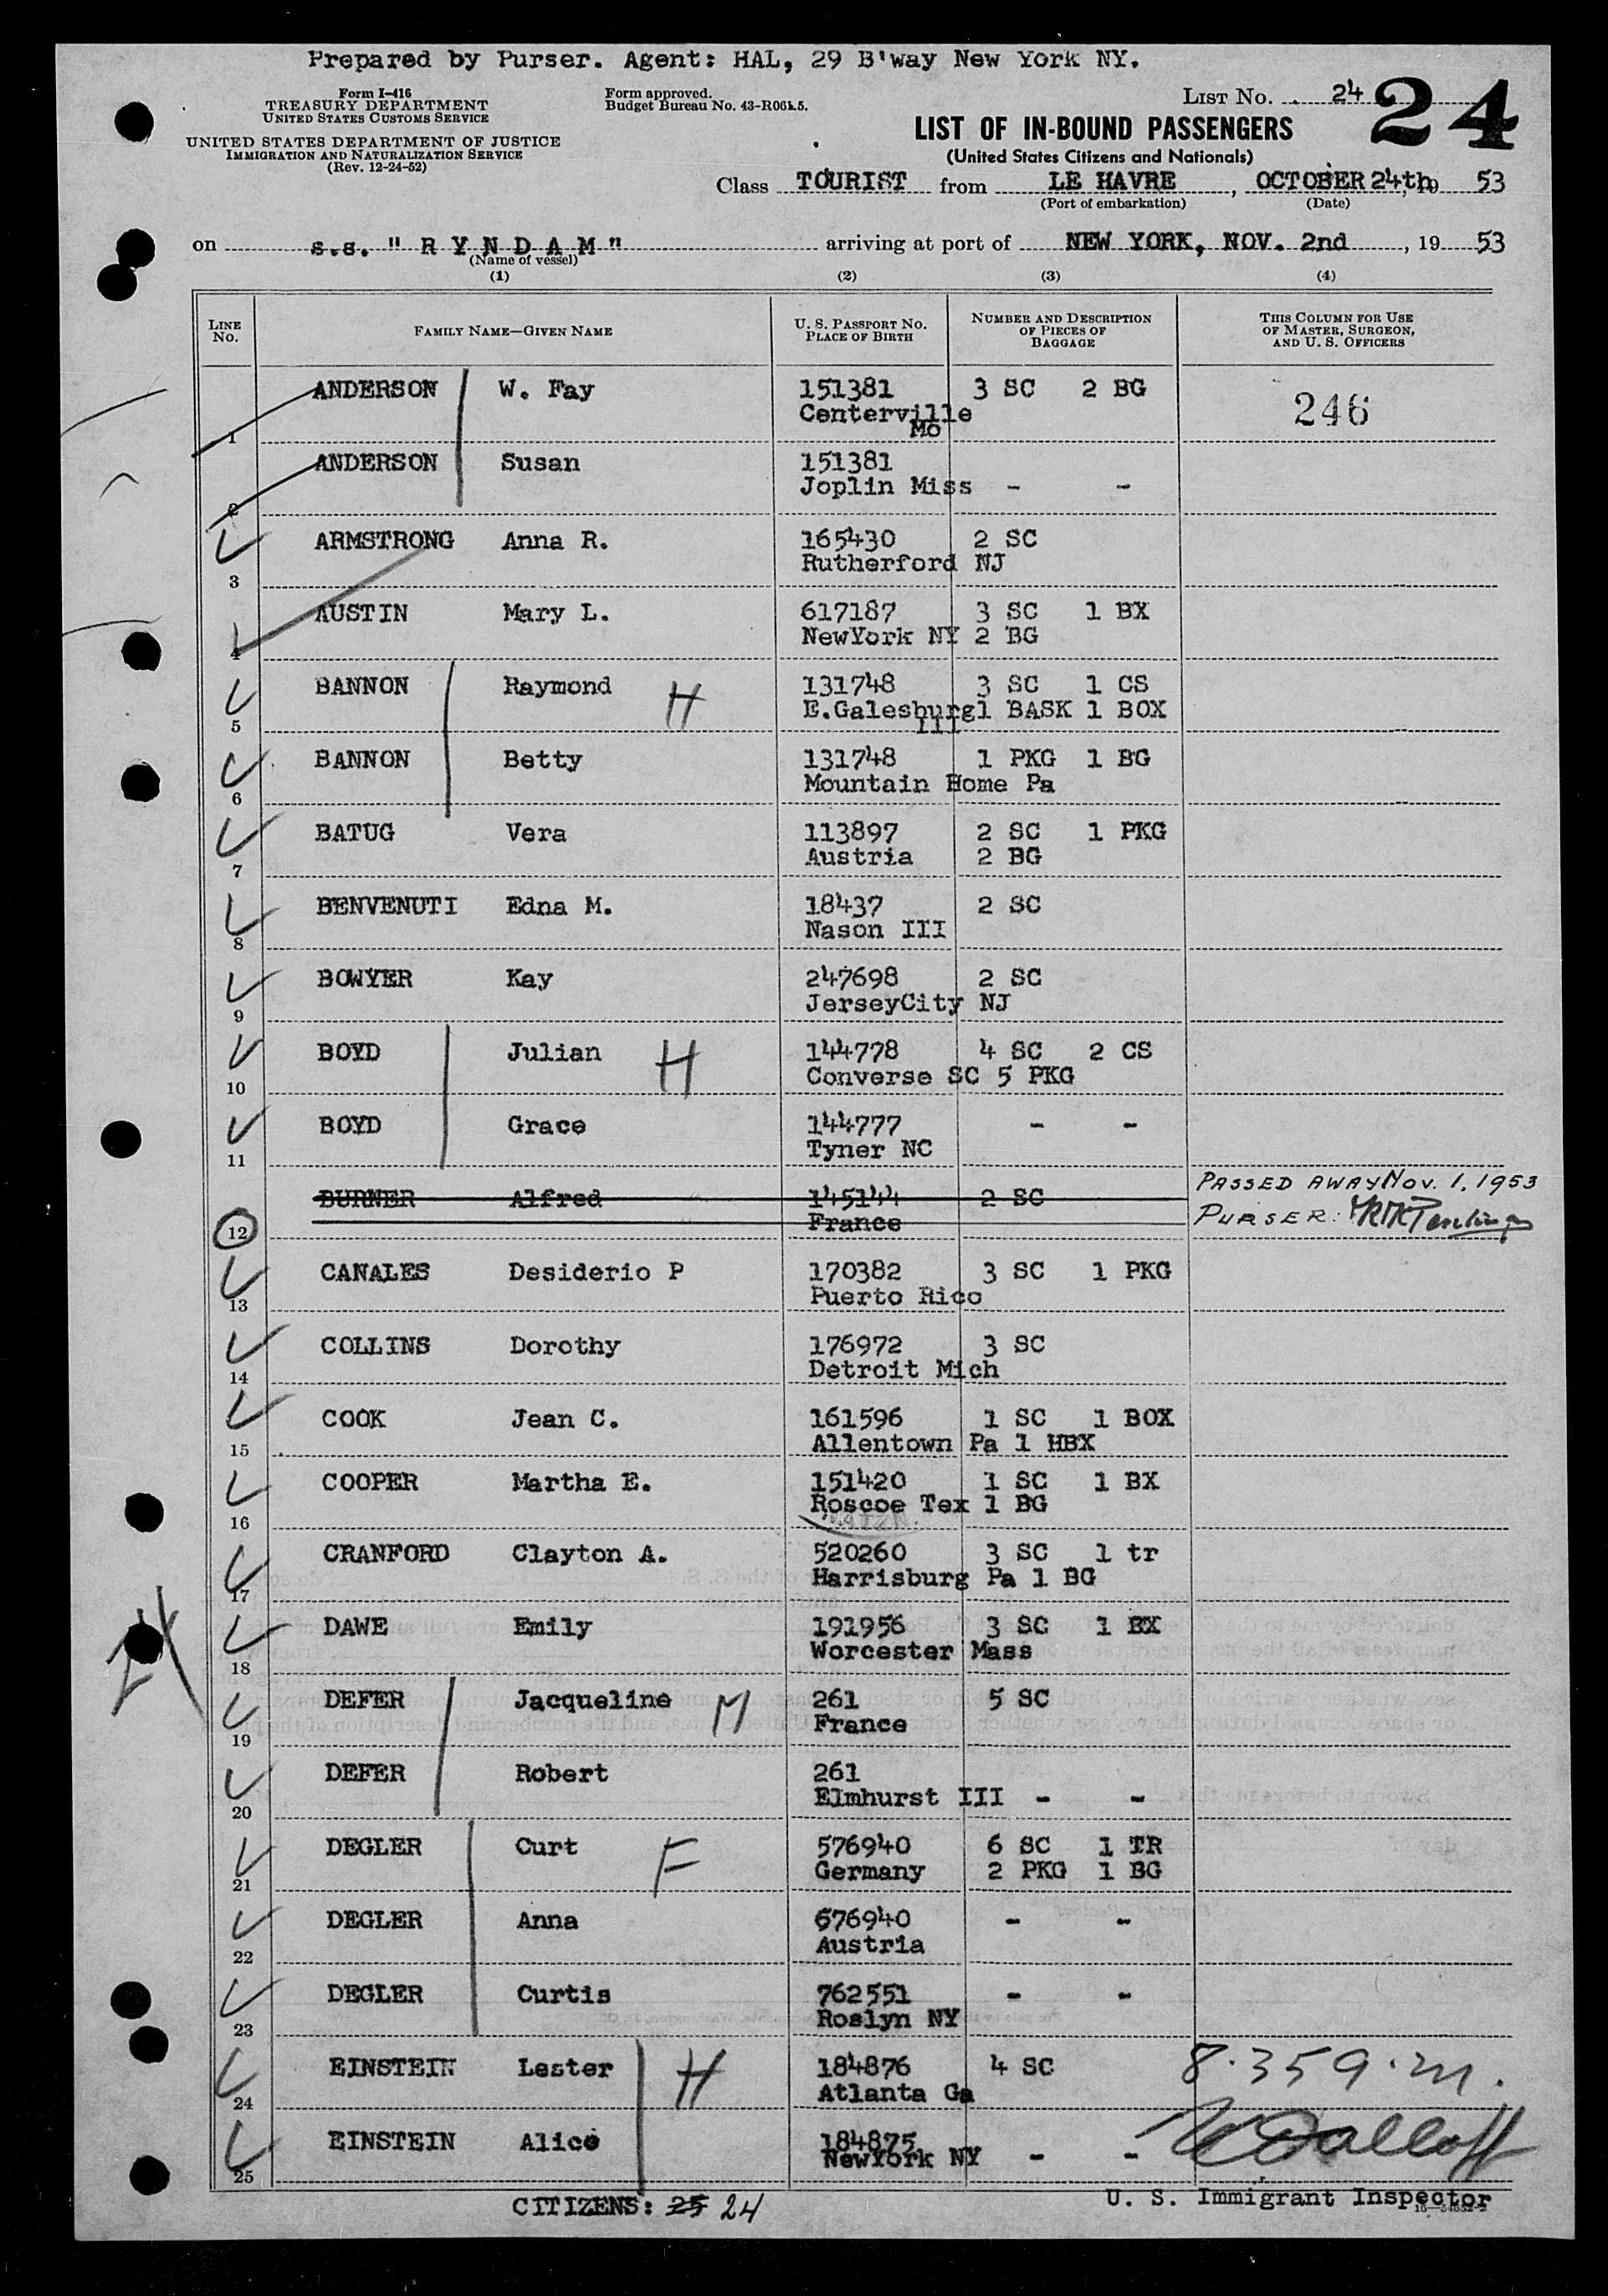 Prepared by Purser. Agent: HAL, 29 B'way New York NY.
Form I-416
TREASURY DEPARTMENT
UNITED STATES CUSTOMS SERVICE
UNITED STATES DEPARTMENT OF JUSTICE
IMMIGRATION AND NATURALIZATION SERVICE
(Rev. 12-24-52)
Form approved.
Budget Bureau No. 43-R064.5.
LIST NO. 24 24
LIST OF IN-BOUND PASSENGERS
(United States Citizens and Nationals)
Class TOURIST from LE HAVRE, OCTOBER 24th, 19 53
(Port of embarkation) (Date)
on s.s. " R Y N D A M " arriving at port of NEW YORK, NOV. 2nd, 19 53
(Name of vessel)
(1) (2) (3) (4)
LINE NO. FAMILY NAME—GIVEN NAME U. S. PASSPORT NO. PLACE OF BIRTH NUMBER AND DESCRIPTION OF PIECES OF BAGGAGE THIS COLUMN FOR USE OF MASTER, SURGEON, AND U. S. OFFICERS
ANDERSON W. Fay 151381 3 SC 2 BG 246
1 Centerville Mo
ANDERSON Susan 151381
2 Joplin Miss - -
ARMSTRONG Anna R. 165430 2 SC
3 Rutherford NJ
AUSTIN Mary L. 617187 3 SC 1 BX
4 NewYork NY 2 BG
BANNON Raymond H 131748 3 SC 1 CS
5 E.Galesburg Ill 1 BASK 1 BOX
BANNON Betty 131748 1 PKG 1 BG
6 Mountain Home Pa
BATUG Vera 113897 2 SC 1 PKG
7 Austria 2 BG
BENVENUTI Edna M. 18437 2 SC
8 Nason III
BOWYER Kay 247698 2 SC
9 JerseyCity NJ
BOYD Julian H 144778 4 SC 2 CS
10 Converse SC 5 PKG
BOYD Grace 144777 - -
11 Tyner NC
BURNER Alfred 145144 2 SC PASSED AWAY Nov. 1, 1953
12 France PURSER:
CANALES Desiderio P 170382 3 SC 1 PKG
13 Puerto Rico
COLLINS Dorothy 176972 3 SC
14 Detroit Mich
COOK Jean C. 161596 1 SC 1 BOX
15 Allentown Pa 1 HBX
COOPER Martha E. 151420 1 SC 1 BX
16 Roscoe Tex 1 BG
CRANFORD Clayton A. 520260 3 SC 1 tr
17 Harrisburg Pa 1 BG
DAWE Emily 191956 3 SC 1 BX
18 Worcester Mass
24
DEFER Jacqueline M 261 5 SC
19 France
DEFER Robert 261
20 Elmhurst III - -
DEGLER Curt F 576940 6 SC 1 TR
21 Germany 2 PKG 1 BG
DEGLER Anna 676940 - -
22 Austria
DEGLER Curtis 762551 - -
23 Roslyn NY
EINSTEIN Lester H 184876 4 SC 8.359.m.
24 Atlanta Ga
EINSTEIN Alice 184875
25 NewYork NY - -
CITIZENS: 25 24
U. S. Immigrant Inspector